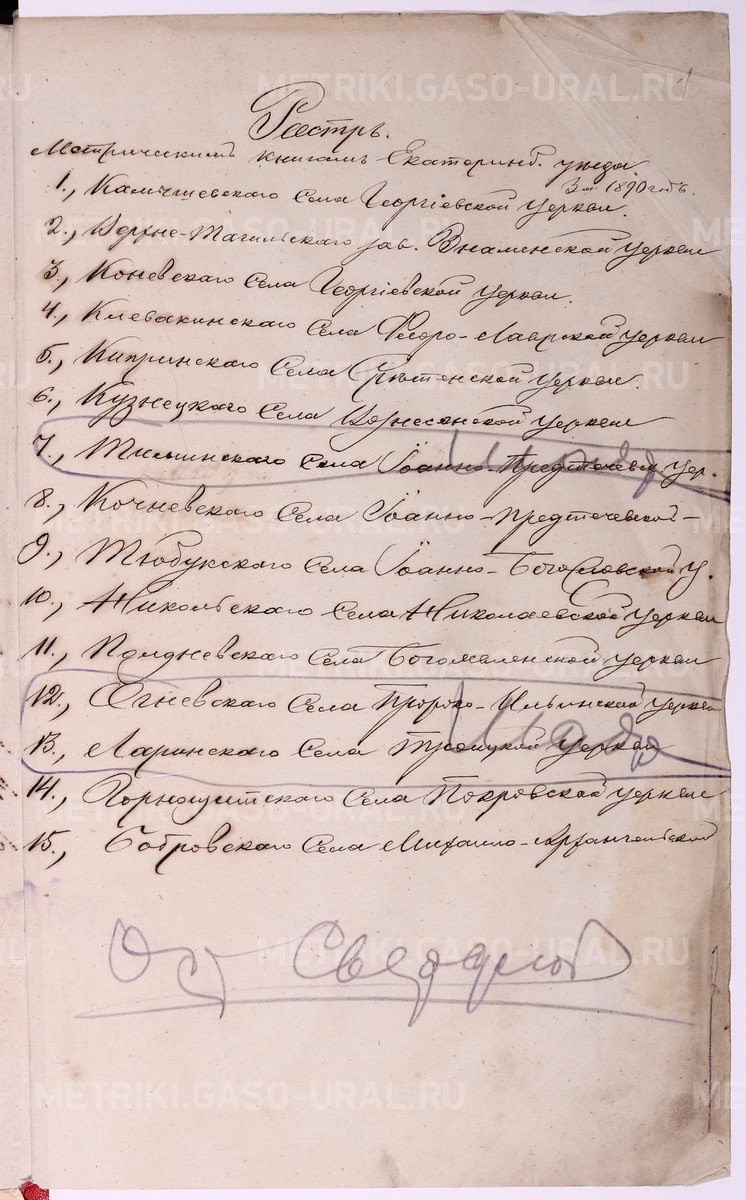 1
Реэстръ.
Метрическимъ книгамъ Екатеринб. уѣзда.
За 1890 годъ.
1., Камышевскаго Села Георгіевской Церкви.
2., Верхне-Тагильскаго зав. Знаменской Церкви
3., Коневскаго Села Георгіевской Церкви.
4., Клевакинскаго Села Флоро-Лаврской Церкви
5., Кипринскаго Села Срѣтенской Церкви.
6., Кузнецкаго Села Вознесенской Церкви
7., Тиминскаго Села Іоанно-Предтечевск. Цер.
8., Кочневскаго Села Іоанно-Предтечевской -
9., Тюбукскаго Села Іоанно-Богословской Ц.
10., Никольскаго Села Николаевской Церкви
11., Полдневскаго Села Богоявленской Церкви
12., Огневскаго Села Пророко-Ильинской Церкви
13., Ларинскаго Села Троицкой Церкви
14., Горнощитскаго Села Покровской Церкви
15., Бобровскаго Села Михаило-Архангельской
Ост Свердлов
METRIKI.GASO-URAL.RU